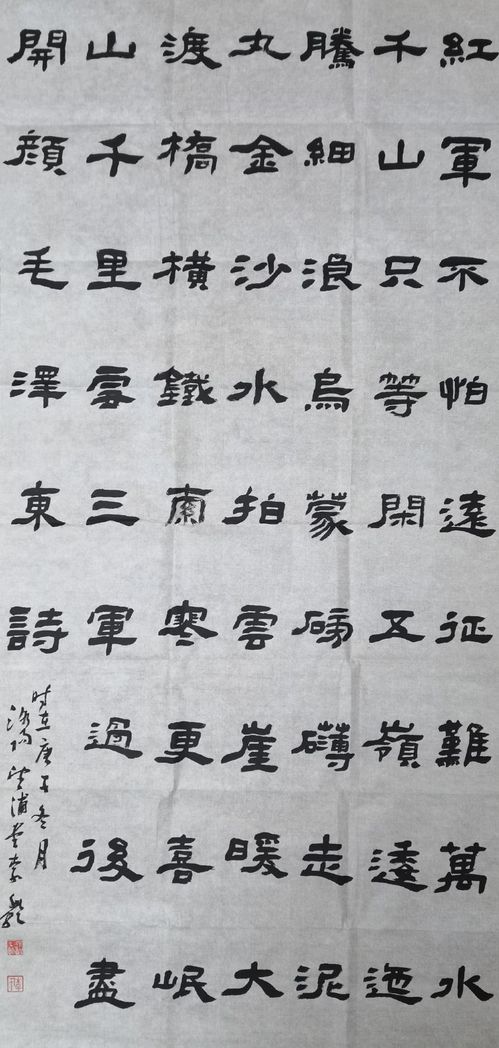 紅軍不怕遠征難萬水
千山只等閑五嶺逶迤
騰細浪烏蒙磅礴走泥
丸金沙水拍雲崖暖大
渡橋橫鐵索寒更喜岷
山千里雪三軍過後盡
開顏毛澤東詩
时在庚子冬月
洛阳浦堂李